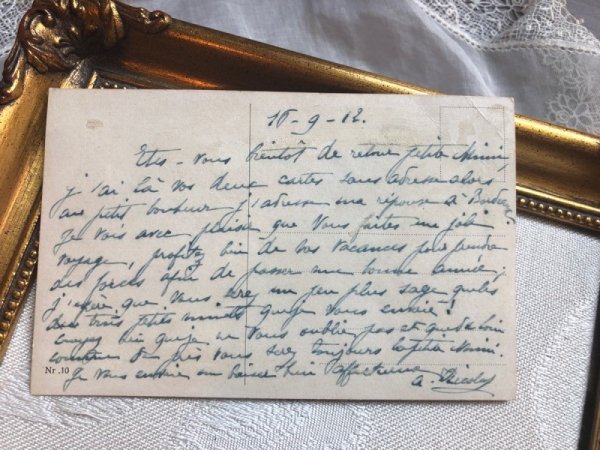 16-9-12.
Êtes-vous bientôt de retour petite Mimi,
j'ai là vos deux cartes sans adresse alors
au petit bonheur j'adresse ma réponse à
Je vois avec plaisir que vous faites un joli
voyage, profitez bien de vos vacances pour prendre
des forces afin de passer une bonne année;
j'espère que vous serez un peu plus sage que les
trois petits minets que je vous envoie!
croyez bien que je ne vous oublie pas et que de loin
comme de près vous êtes toujours la petite Mimi.
Je vous envoie un baiser bien affectueux
Nr. 10